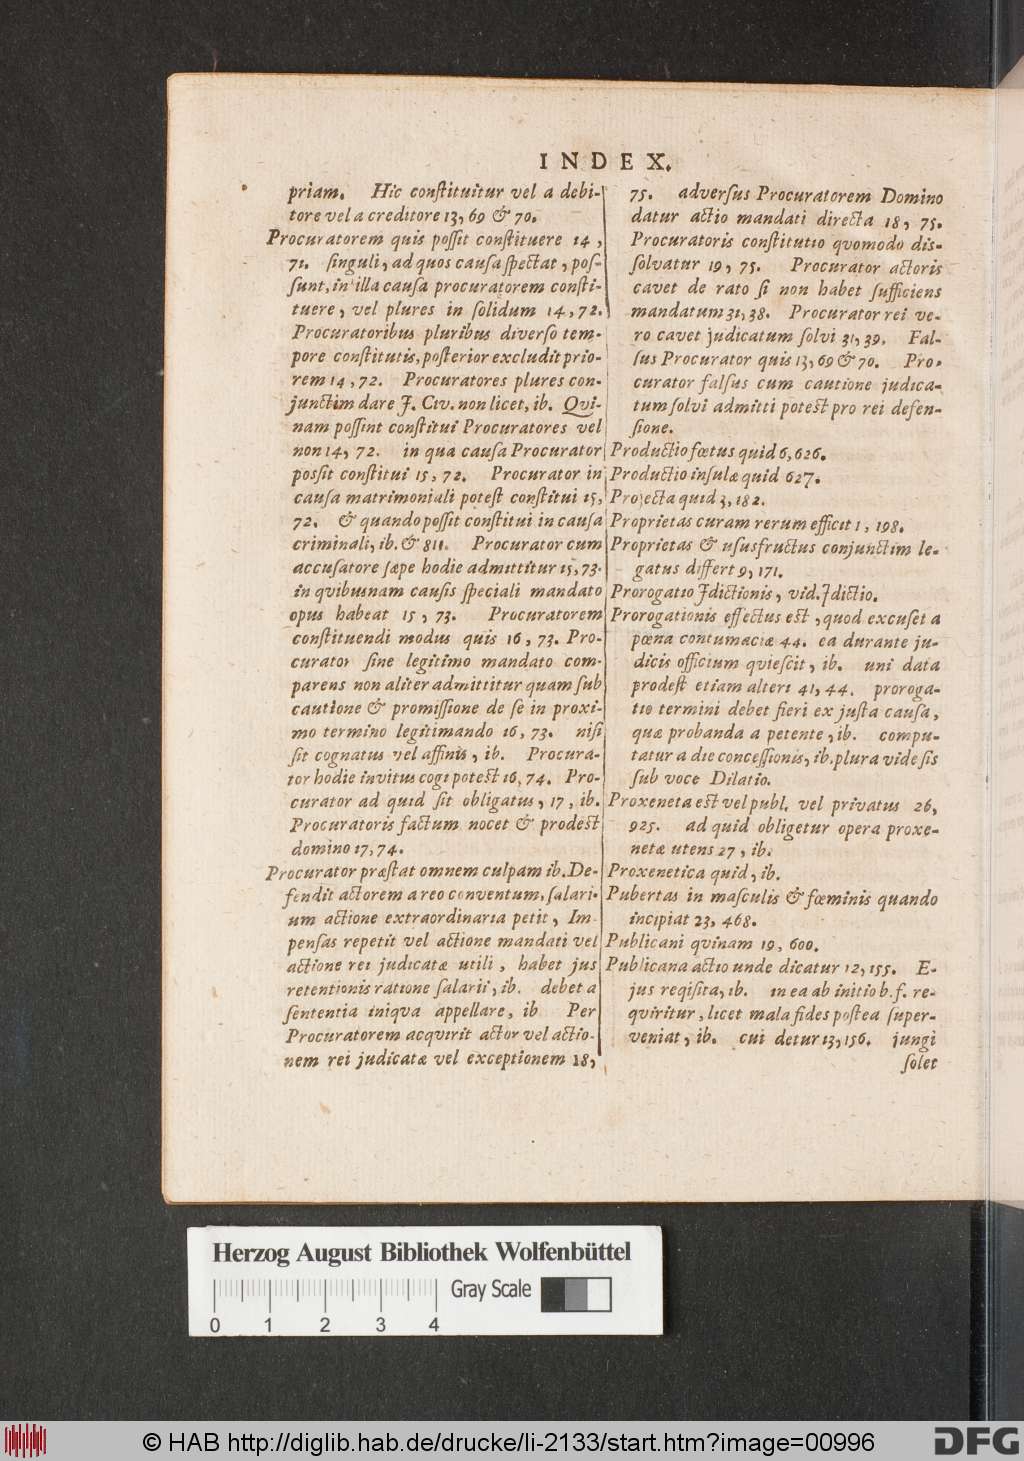 INDEX.
priam. Hic conſtituitur vel a debi-
tore vel a creditore 13, 69 & 70.
Procuratorem quis poſſit conſtituere 14,
71. ſinguli, ad quos cauſa ſpectat, poſ-
ſunt, in illa cauſa procuratorem conſti-
tuere, vel plures in ſolidum 14, 72.
Procuratoribus pluribus diverſo tem-
pore conſtitutis, poſterior excludit prio-
rem 14, 72. Procuratores plures con-
junctim dare J. Civ. non licet, ib. Qvi-
nam poſſint conſtitui Procuratores vel
non 14, 72. in qua cauſa Procurator
poſſit conſtitui 15, 72. Procurator in
cauſa matrimoniali poteſt conſtitui 15,
72. & quando poſſit conſtitui in cauſa
criminali, ib. & 811. Procurator cum
accuſatore ſæpe hodie admittitur 15, 73.
in qvibusnam cauſis ſpeciali mandato
opus habeat 15, 73. Procuratorem
conſtituendi modus quis 16, 73. Pro-
curator ſine legitimo mandato com-
parens non aliter admittitur quam ſub
cautione & promiſſione de ſe in proxi-
mo termino legitimando 16, 73. niſi
ſit cognatus vel affinis, ib. Procura-
tor hodie invitus cogi poteſt 16, 74. Pro-
curator ad quid ſit obligatus, 17, ib.
Procuratoris factum nocet & prodeſt
domino 17, 74.
Procurator præſtat omnem culpam ib. De-
fendit actorem a reo conventum, ſalari-
um actione extraordinaria petit, Im-
penſas repetit vel actione mandati vel
actione rei judicatæ utili, habet jus
retentionis ratione ſalarii, ib. debet a
ſententia iniqva appellare, ib Per
Procuratorem acqvirit actor vel actio-
nem rei judicatæ vel exceptionem 18,
75. adverſus Procuratorem Domino
datur actio mandati directa 18, 75.
Procuratoris conſtitutio qvomodo dis-
ſolvatur 19, 75. Procurator actoris
cavet de rato ſi non habet ſufficiens
mandatum 31, 38. Procurator rei ve-
ro cavet judicatum ſolvi 31, 39. Fal-
ſus Procurator quis 13, 69 & 70. Pro-
curator falſus cum cautione judica-
tum ſolvi admitti poteſt pro rei defen-
ſione.
Productio fœtus quid 6, 626.
Productio inſulæ quid 627.
Projecta quid 3, 182.
Proprietas curam rerum efficit 1, 198.
Proprietas & uſusfructus conjunctim le-
gatus differt 9, 171.
Prorogatio Jdictionis, vid. Jdictio.
Prorogationis effectus eſt, quod excuſet a
pœna contumaciæ 44. ea durante ju-
dicis officium quieſcit, ib. uni data
prodeſt etiam alteri 41, 44. proroga-
tio termini debet fieri ex juſta cauſa,
quæ probanda a petente, ib. compu-
tatur a die conceſſionis, ib. plura vide ſis
ſub voce Dilatio.
Proxeneta eſt vel publ. vel privatus 26,
925. ad quid obligetur opera proxe-
netæ utens 27, ib.
Proxenetica quid, ib.
Pubertas in maſculis & fœminis quando
incipiat 23, 468.
Publicani qvinam 19, 600.
Publicana actio unde dicatur 12, 155. E-
jus reqiſita, ib. in ea ab initio b. f. re-
qviritur, licet mala fides poſtea ſuper-
veniat, ib. cui detur 13, 156. jungi
ſolet
Herzog August Bibliothek Wolfenbüttel
Gray Scale
0 1 2 3 4
© HAB http://diglib.hab.de/drucke/li-2133/start.htm?image=00996
DFG